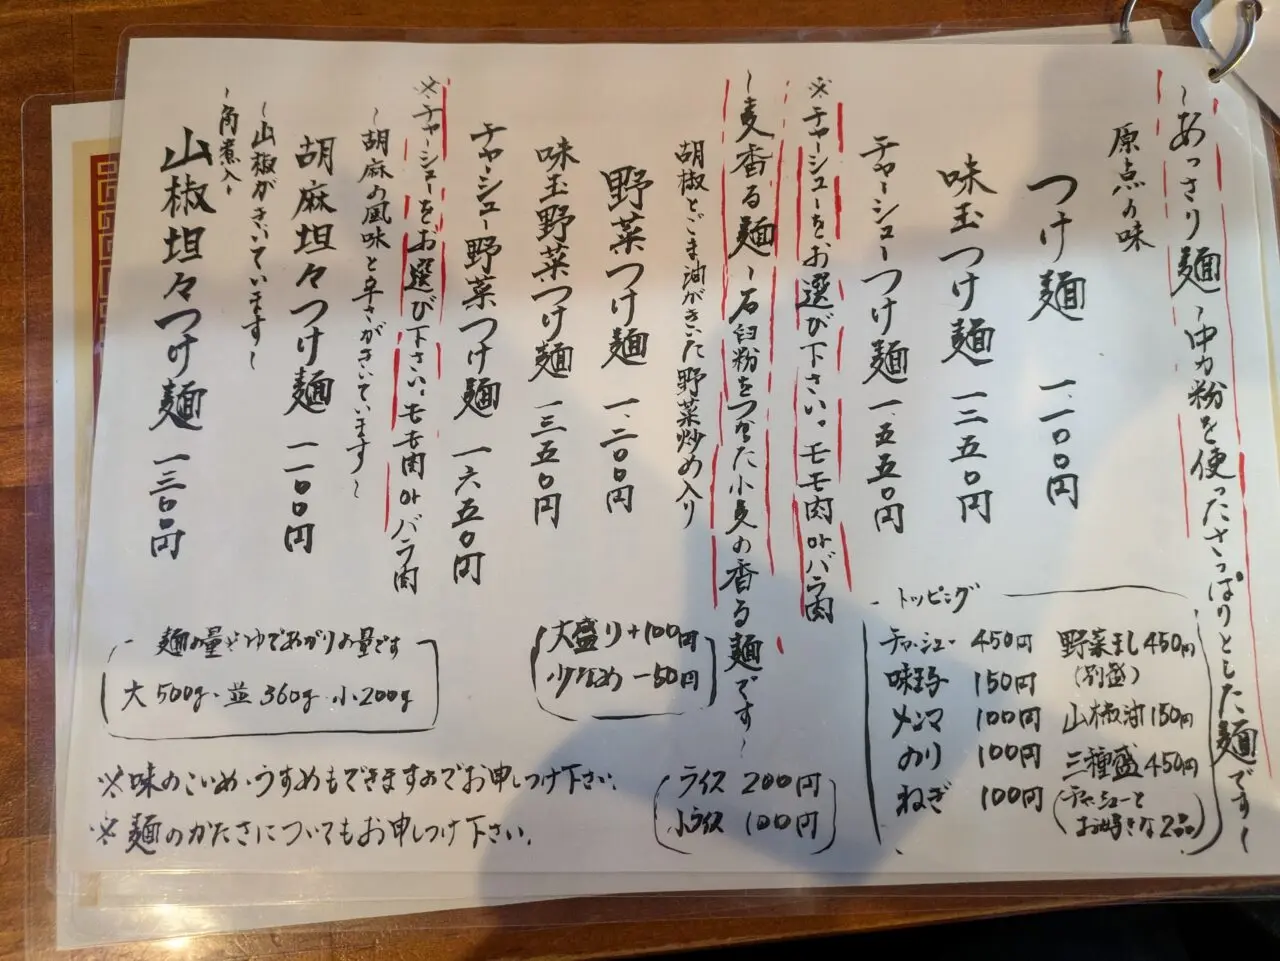 ～あっさり麺～中力粉を使ったさっぱりとした麺です～
原点の味
つけ麺 一、一〇〇円
味玉つけ麺 一二五〇円
チャーシューつけ麺 一、五五〇円
※チャーシューをお選び下さい。モモ肉orバラ肉
～麦香る麺～石臼粉をつかった小麦の香る麺です～
胡椒とごま油がきいた野菜炒め入り
野菜つけ麺 一、二〇〇円
味玉野菜つけ麺 一三五〇円
チャーシュー野菜つけ麺 一六五〇円
※チャーシューをお選び下さい。モモ肉orバラ肉
～胡麻の風味と辛さがきいています～
胡麻坦々つけ麺 一一〇〇円
～山椒がきいています～
～角煮入～
山椒坦々つけ麺 一三〇〇円
トッピング
チャーシュー 450円
味玉子 150円
メンマ 100円
のり 100円
ねぎ 100円
野菜まし 450円
(別盛)
山椒油 150円
三種盛 450円
(チャーシューと
お好きな2品)
大盛り+100円
少なめ-50円
麺の量はゆであがりの量です
大500g・並360g・小200g
ライス 200円
小ライス 100円
※味のこいめ・うすめもできますのでお申しつけ下さい。
※麺のかたさについてもお申しつけ下さい。